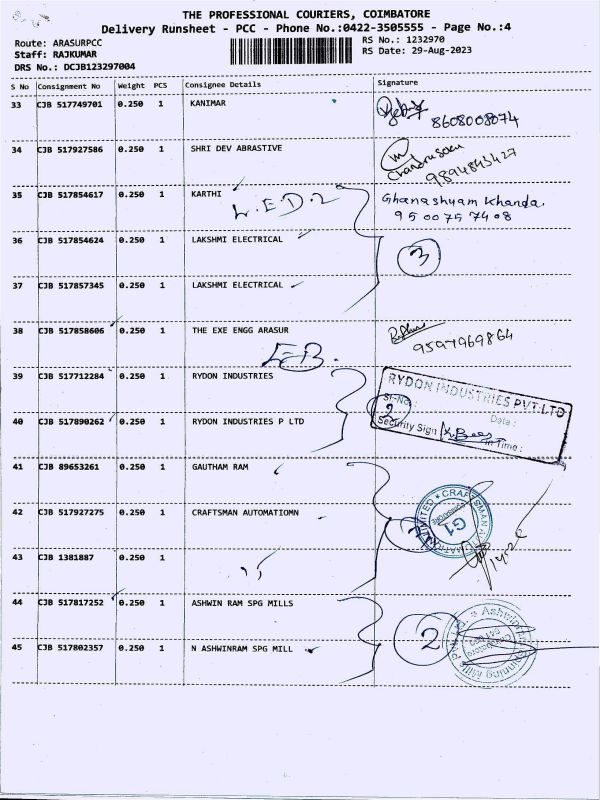 THE PROFESSIONAL COURIERS, COIMBATORE
Delivery Runsheet - PCC - Phone No.:0422-3505555 - Page No.:4
Route: ARASURPCC
RS No.: 1232970
Staff: RAJKUMAR
RS Date: 29-Aug-2023
DRS No.: DCJB123297004
S No Consignment No Weight PCS Consignee Details Signature
33 CJB 517749701 0.250 1 KANIMAR
8608008074
34 CJB 517927586 0.250 1 SHRI DEV ABRASTIVE
9894843427
35 CJB 517854617 0.250 1 KARTHI Ghanashyam Khanda.
L.E.D.2 9500757408
36 CJB 517854624 0.250 1 LAKSHMI ELECTRICAL
3
37 CJB 517857345 0.250 1 LAKSHMI ELECTRICAL
38 CJB 517858606 0.250 1 THE EXE ENGG ARASUR
9597969864
E.B.
39 CJB 517712284 0.250 1 RYDON INDUSTRIES
RYDON INDUSTRIES PVT.LTD
Sl.No.:
2
Date :
40 CJB 517890262 0.250 1 RYDON INDUSTRIES P LTD
Security Sign
In Time :
41 CJB 89653261 0.250 1 GAUTHAM RAM
42 CJB 517927275 0.250 1 CRAFTSMAN AUTOMATIOMN
G1
43 CJB 1381887 0.250 1
44 CJB 517817252 0.250 1 ASHWIN RAM SPG MILLS
2
45 CJB 517802357 0.250 1 N ASHWINRAM SPG MILL